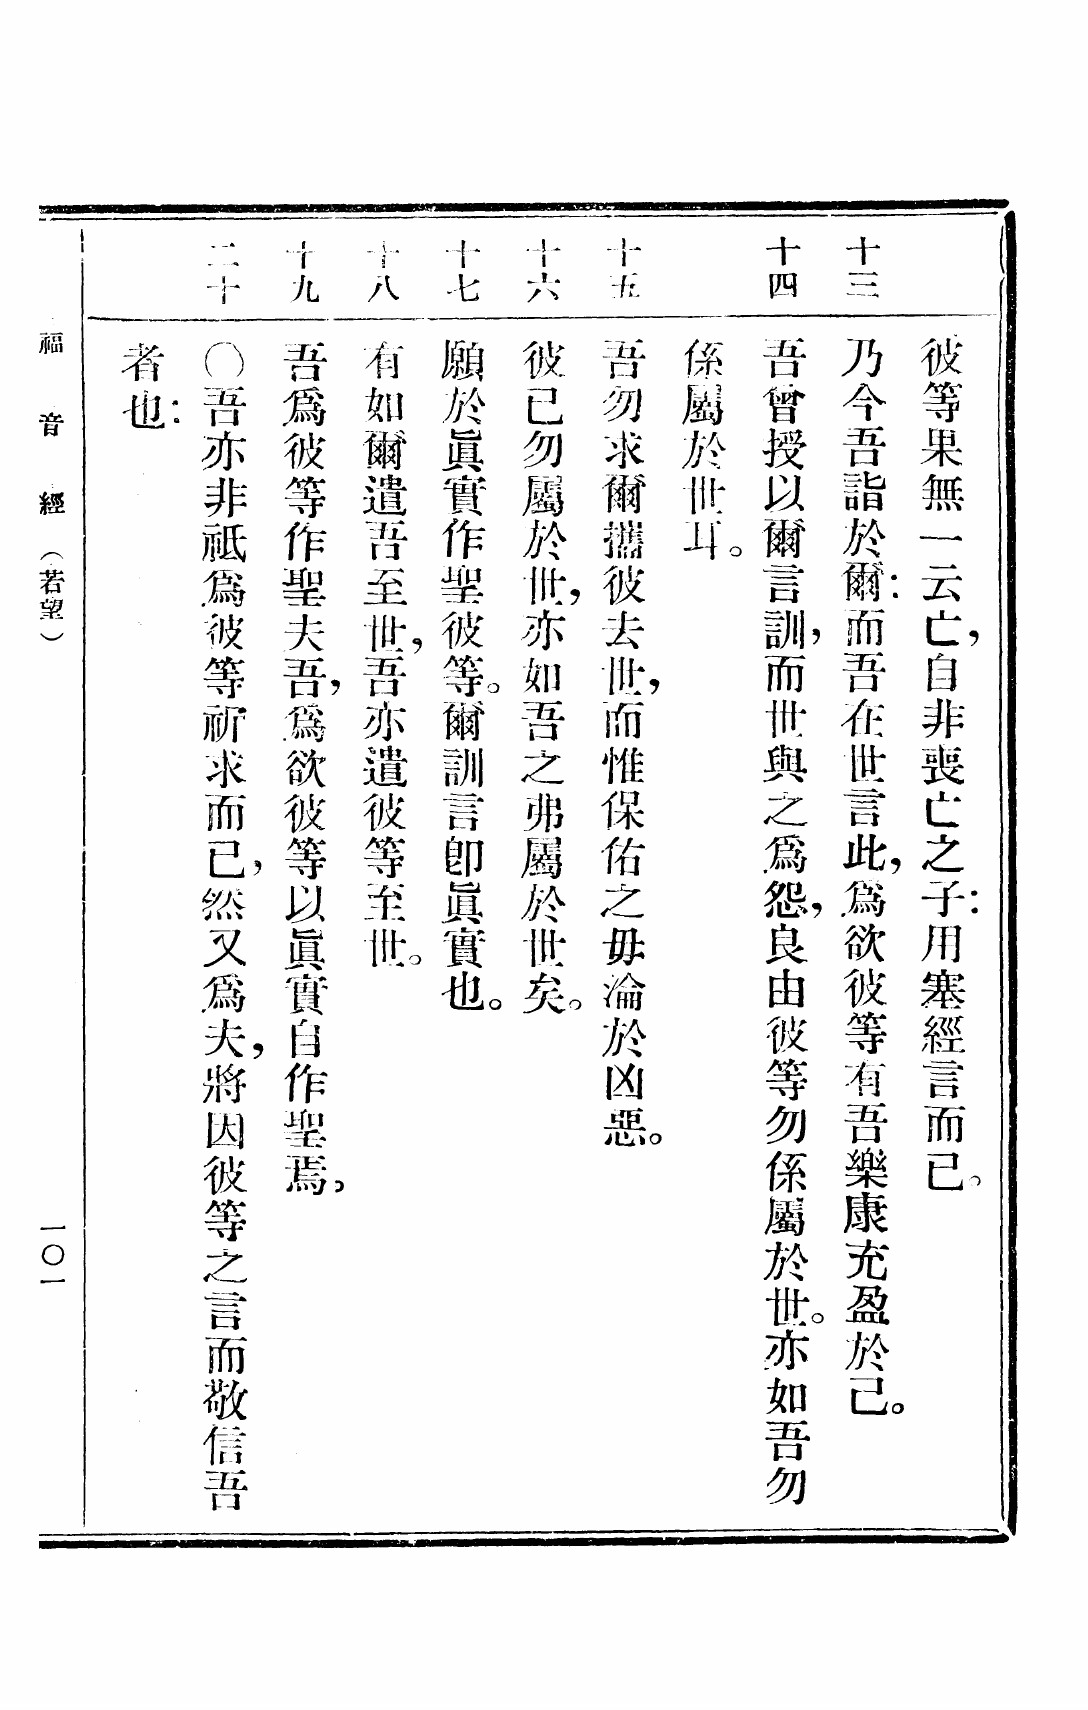 彼等果無一云亡，自非喪亡之子：用塞經言而已。
十三
乃今吾詣於爾：而吾在世言此，爲欲彼等有吾樂康充盈於己。
十四
吾曾授以爾言訓，而世與之爲怨，良由彼等勿係屬於世。亦如吾勿
係屬於世耳。
十五
吾勿求爾攜彼去世，而惟保佑之毋淪於凶惡。
十六
彼已勿屬於世，亦如吾之弗屬於世矣。
十七
願於眞實作聖彼等。爾訓言卽眞實也。
十八
有如爾遣吾至世，吾亦遣彼等至世。
十九
吾爲彼等作聖夫吾，爲欲彼等以眞實自作聖焉，
二十
〇吾亦非祇爲彼等祈求而已，然又爲夫，將因彼等之言而敬信吾
者也：
福音經（若望）
一〇一